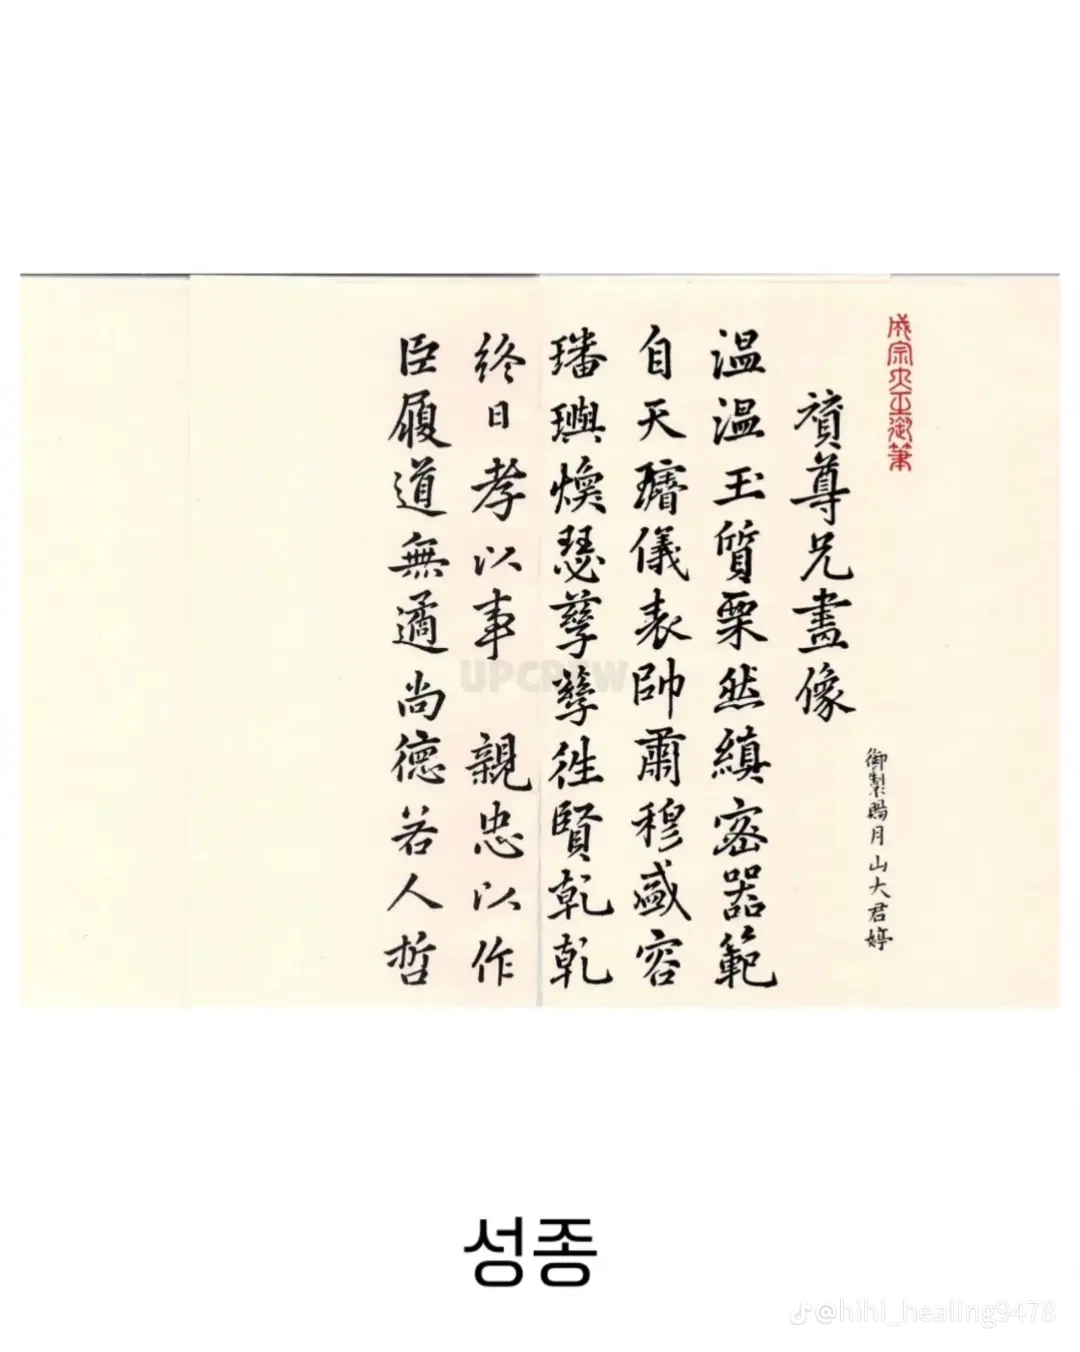 成宗大王御筆
御製賜月山大君婷
賛尊兄畫像
溫溫玉質栗然縝密器範
自天璿儀表帥肅穆盛容
璠璵煥瑟孳孳徃賢乾乾
終日孝以事 親忠以作
臣履道無遹尚德若人哲
UPCREW
성종
@hihi_healing9478